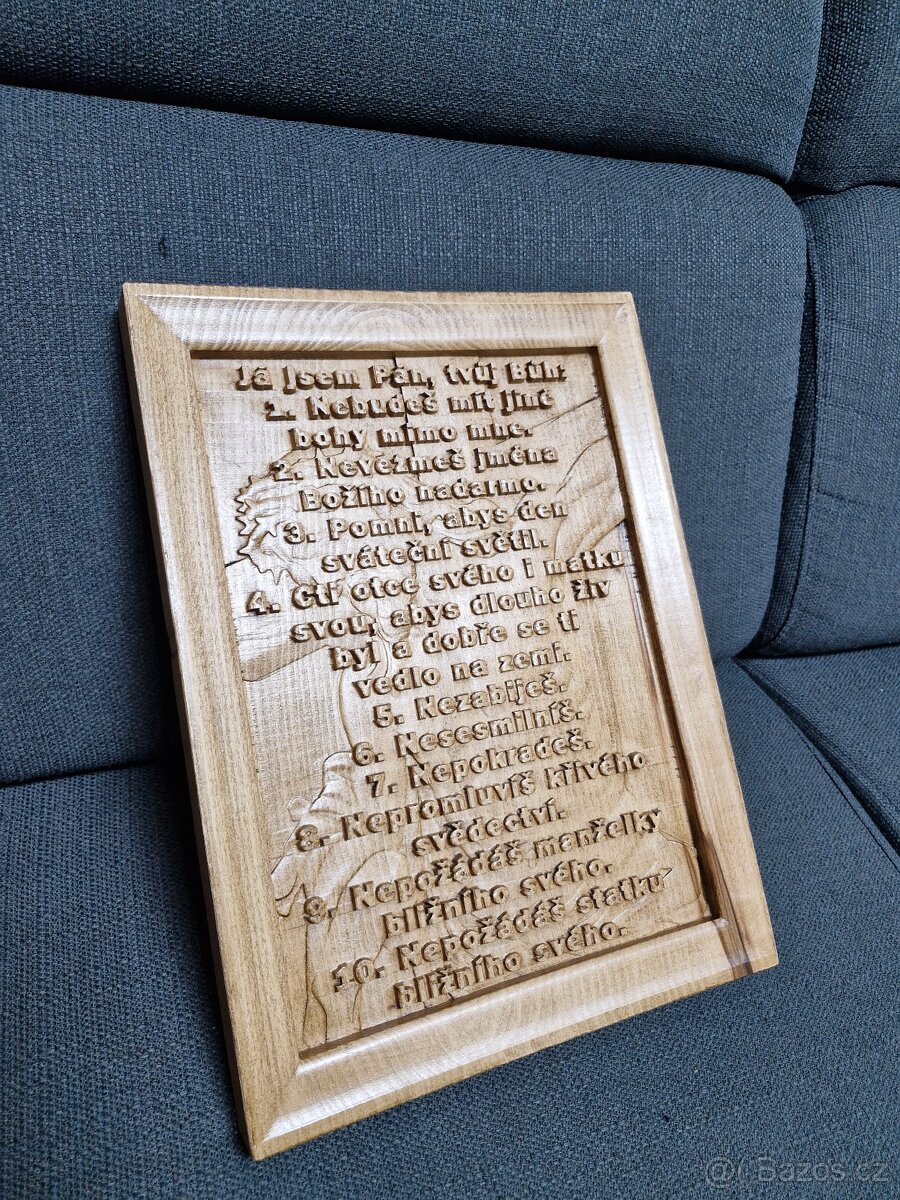 Já jsem Pán, tvůj Bůh:
1. Nebudeš mít jiné
bohy mimo mne.
2. Nevezmeš jména
Božího nadarmo.
3. Pomni, abys den
sváteční světil.
4. Cti otce svého i matku
svou, abys dlouho živ
byl a dobře se ti
vedlo na zemi.
5. Nezabiješ.
6. Nesesmilníš.
7. Nepokradeš.
8. Nepromluvíš křivého
svědectví.
9. Nepožádáš manželky
bližního svého.
10. Nepožádáš statku
bližního svého.
@( Bazos.cz